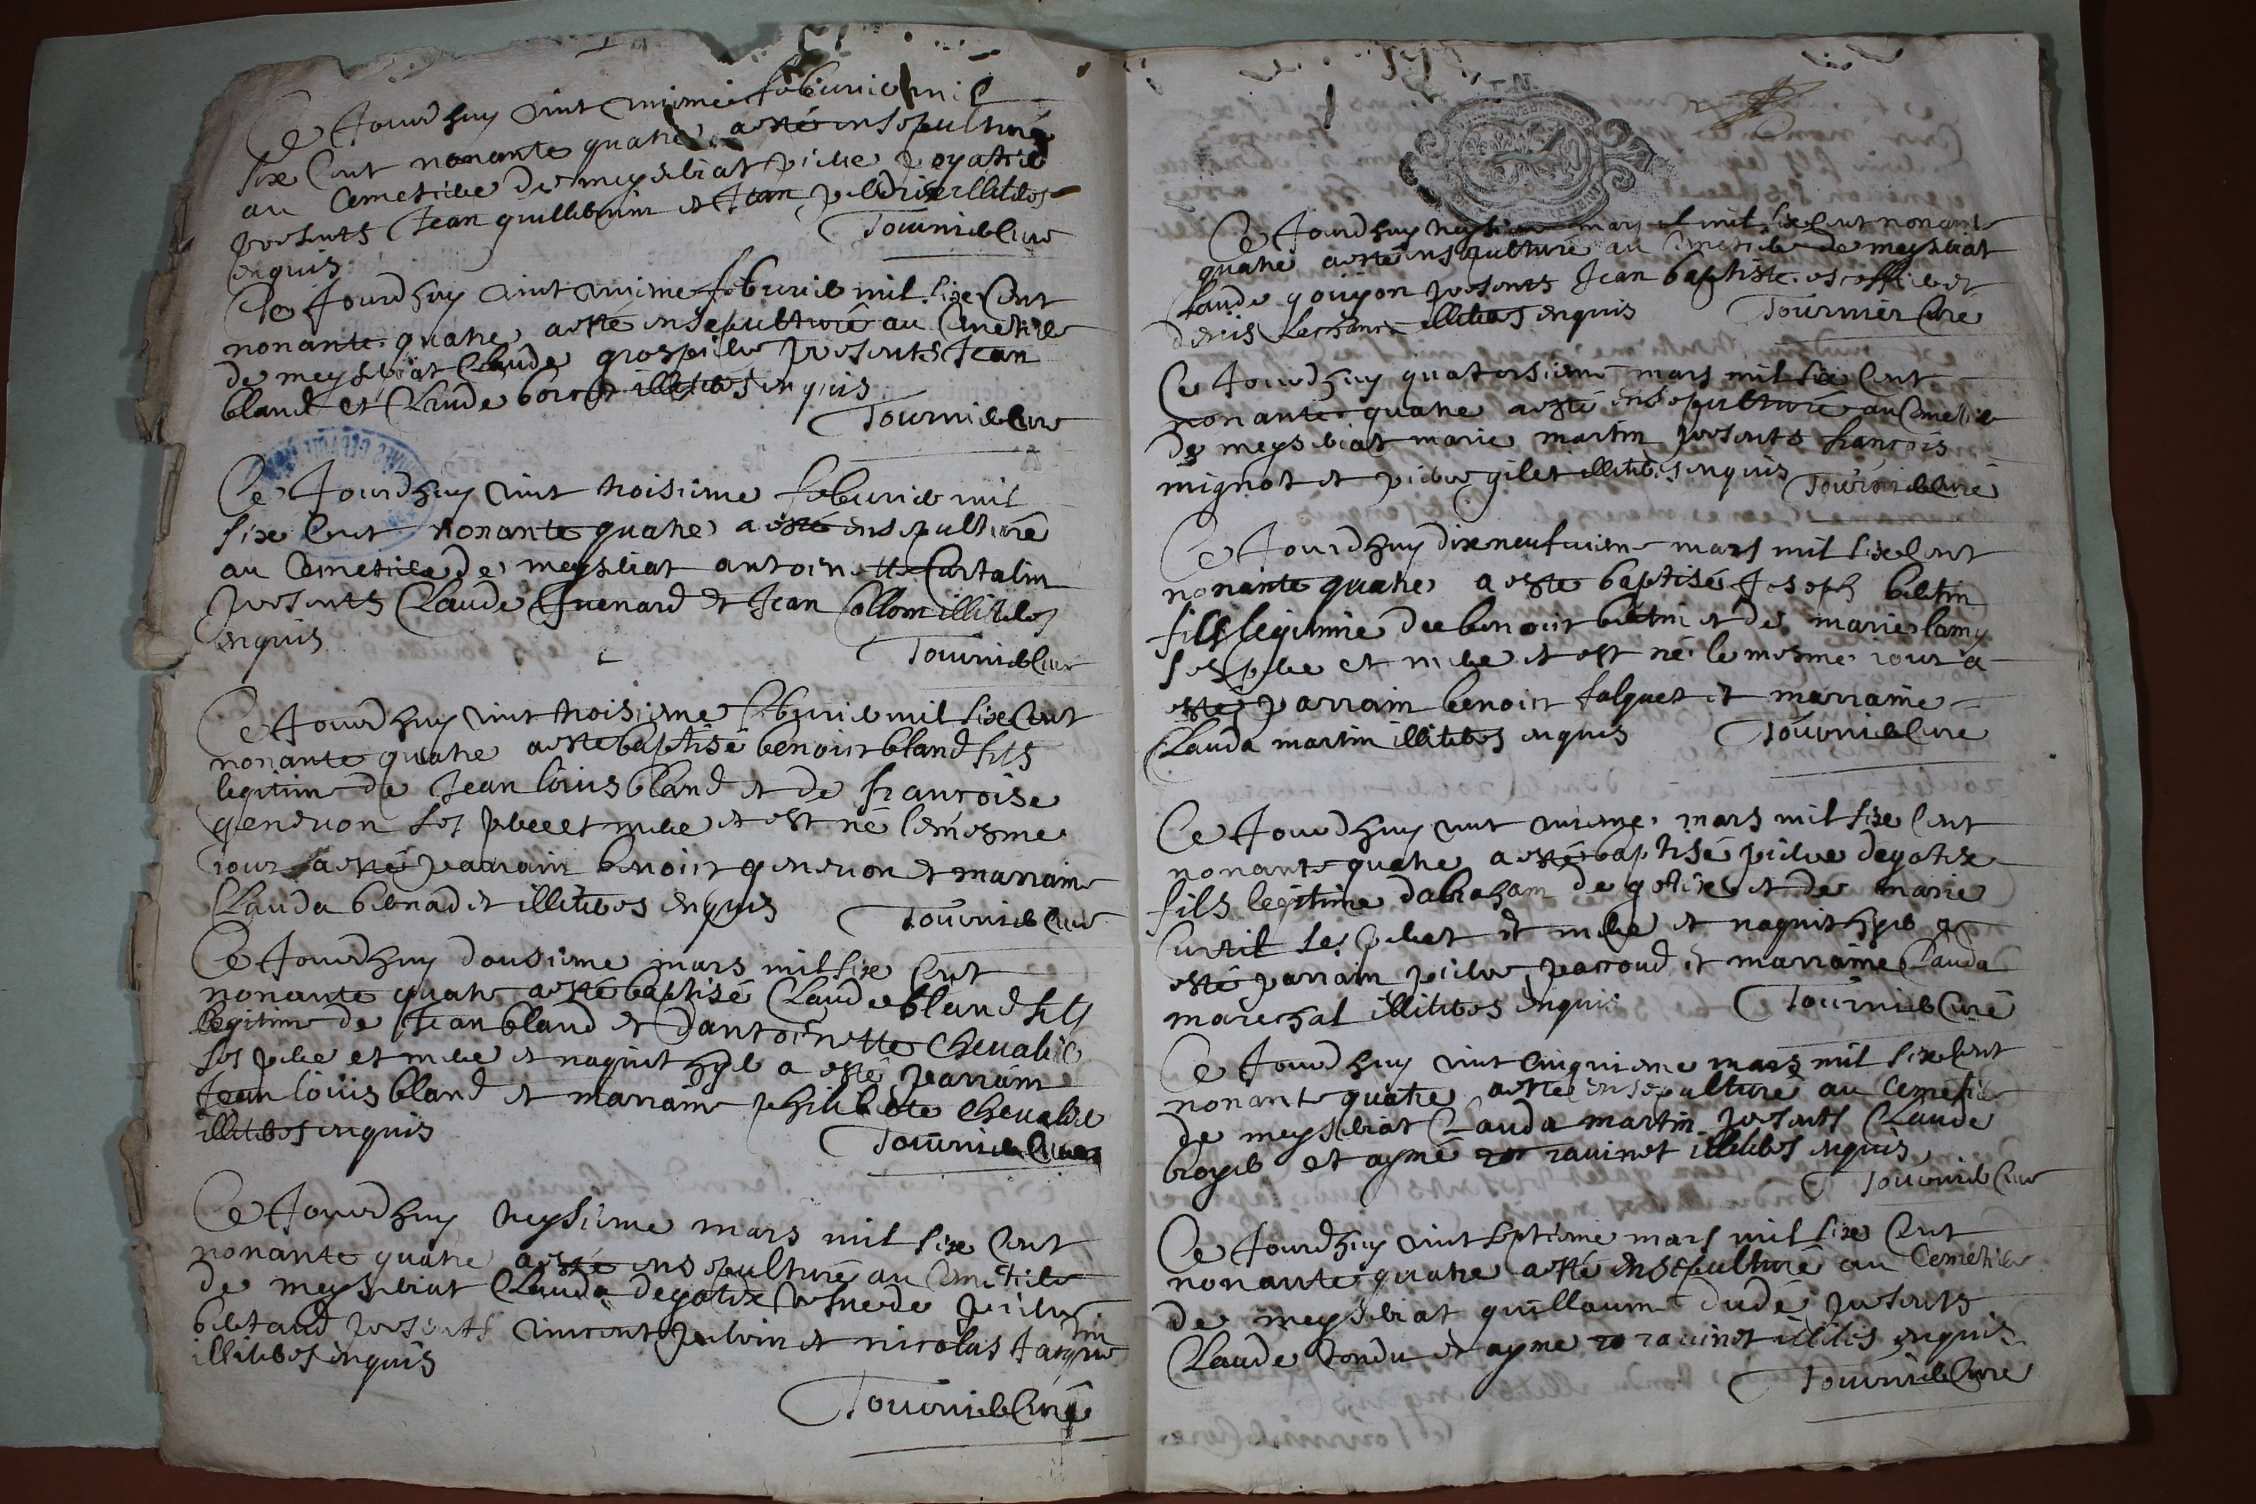 Ce Jourdhuy vint unime feburier mil
six Cent nonante quatre a esté ensepulturé
au Cemetiere de meyseriat pierre
presents Jean guillermin et Jean illiteres
enquis Tournier Cure
Ce Jourdhuy vint unime feburier mil six Cent
nonante quatre a esté ensepulturé au Cemetiere
de meyseriat Claude grospierre presents Jean
bland et Claude illiteres enquis
Tournier Cure
Ce Jourdhuy vint troisieme feburier mil
six Cent nonante quatre a esté ensepulturé
au Cemetiere de meyseriat antoinette Cartalin
presents Claude Guenard et Jean Collom illiteres
enquis Tournier Cure
Ce Jourdhuy vint troisieme feburier mil six Cent
nonante quatre a esté baptisé benoist bland fils
legitime de Jean louis bland et de françoise
genevon ses pere et mere et est né le mesme
jour a esté parrain benoist genevon et marraine
Clauda illiteres enquis Tournier Cure
Ce Jourdhuy dousieme mars mil six Cent
nonante quatre a esté baptisé Claude bland fils
legitime de Jean bland et dantoinette Chevalier
ses pere et mere et naquit hyer a esté parrain
Jean louis bland et marraine philiberte Chevalier
illiteres enquis Tournier Cure
Ce Jourdhuy treysieme mars mil six Cent
nonante quatre a esté ensepulturé au Cemetiere
de meyseriat Clauda degotex vesve de pierre
bertaud presents vincent et nicolas
illiteres enquis
Tournier Curé
Ce Jourdhuy treysieme mars mil six Cent nonante
quatre a esté ensepulturé au Cemetiere de meyseriat
Claude goujon presents Jean baptiste escoffier et
denis illiteres enquis Tournier Cure
Ce Jourdhuy quatorsieme mars mil six Cent
nonante quatre a esté ensepulturé au Cemetiere
de meyseriat marie martin presents francois
mignot et pierre gilet illiteres enquis Tournier Curé
Ce Jourdhuy dixneufvieme mars mil six Cent
nonante quatre a este baptisé Joseph
fils legitime de benoist et de marie lamy
ses pere et mere et est né le mesme jour a
esté parrain benoist falquet et marraine
Clauda martin illiteres enquis Tournier Cure
Ce Jourdhuy vint unieme mars mil six Cent
nonante quatre a esté baptisé pierre degotex
fils legitime dabraham degotex et de marie
Curtil ses pere et mere et naquit hyer a
esté parrain pierre perroud et marraine Clauda
marechal illiteres enquis Tournier Curé
Ce Jourdhuy vint cinquieme mars mil six Cent
nonante quatre a esté ensepulturé au Cemetiere
de meyseriat Clauda martin presents Claude
broyer et aymé ravinet illiteres enquis
Tournier Cure
Ce Jourdhuy vint septieme mars mil six Cent
nonante quatre a esté ensepulturé au Cemetiere
de meyseriat guillaume dudé presents
Claude tondu et ayme ravinet illiteres enquis
Tournier Cure